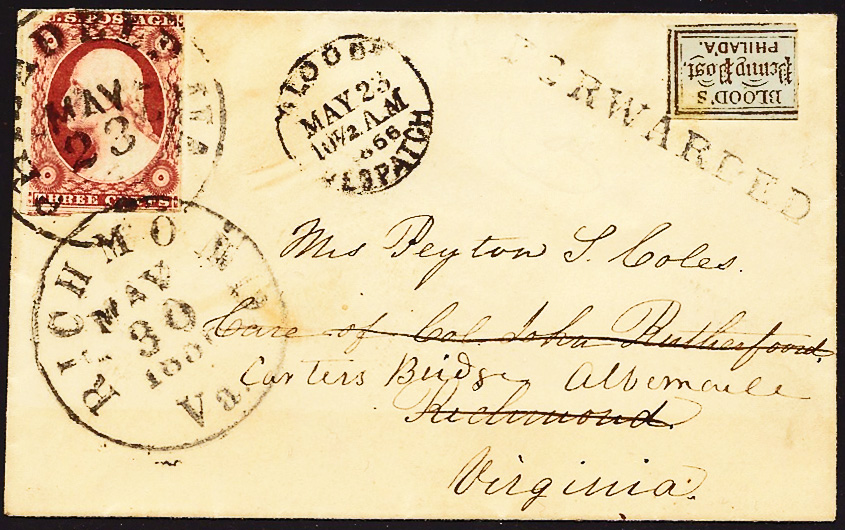 U.S. POSTAGE
THREE CENTS
MAY
23
BLOOD'S
MAY 23
10½ A.M
DESPATCH
FORWARDED
BLOOD'S
Penny Post.
PHILAD'A.
RICHMOND
MAY
30
Va.
Mrs Peyton S. Coles.
Care of Col John Rutherfoord.
Carters Bridge Albemarle
Richmond.
Virginia.